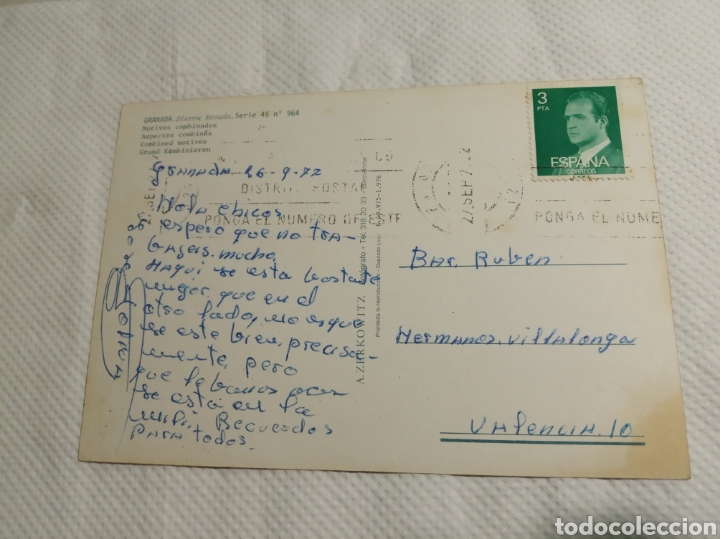 GRANADA. Serie 45 nº 964
Motivos combinados
Aspectes combinés
Combined motives
Grand Kombinieren
GRANADA 26-9-77
Hola chicos
espero que no tra-
bageis mucho,
Haqui se esta bastante
mejor que en el
otro lado, no es que
se este bien, precisa-
mente, pero
que le bamos
se esta en la
mili. Recuerdos
PARA Todos.
A. ZERKOWITZ Fotógrafo - Barcelona
DISTRITO POSTAL
PONGA EL NUMERO DE ESTE
27 SEP 77
PONGA EL NUME
3
PTA
ESPAÑA
CORREOS
Bar. Ruben
Hermanos Villalonga
Valencia. 10
todocoleccion